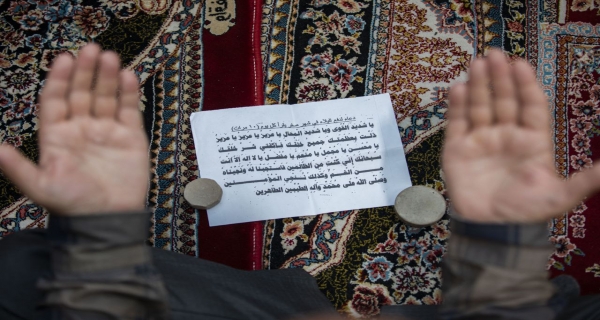 دعاء لدفع البلاء في شهر صفر يقرأ كل يوم (١٠ مرات)
يا شديد القوى ويا شديد المحال يا عزيز يا عزيز يا عزيز
ذلت بعظمتك جميع خلقك فاكفني شر خلقك
يا محسن يا مجمل يا منعم يا مفضل يا لا اله الا أنت
سبحانك إني كنت من الظالمين فاستجبنا له ونجيناه
من الغم وكذلك ننجي المؤمنين
وصلى الله على محمد وآله الطيبين الطاهرين